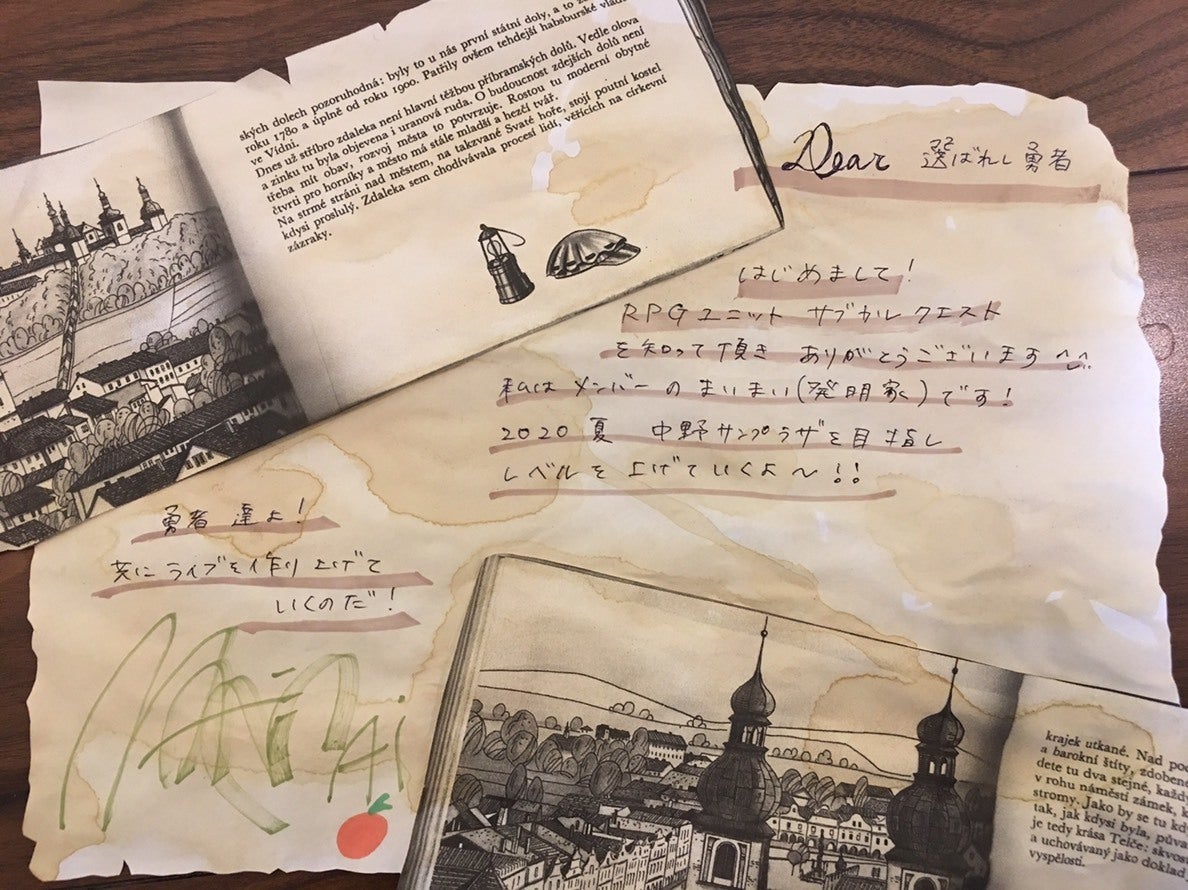 ských dolech pozoruhodná: byly to u nás první státní doly, a to
roku 1780 a úplně od roku 1900. Patřily ovšem tehdejší habsburské
ve Vídni.
Dnes už stříbro zdaleka není hlavní těžbou příbramských dolů. Vedle olova
a zinku tu byla objevena i uranová ruda. O budoucnost zdejších dolů není
třeba mít obav, rozvoj města to potvrzuje. Rostou tu moderní obytné
čtvrti pro horníky a město má stále mladší a hezčí tvář.
Na strmé stráni nad městem, na takzvané Svaté hoře, stojí poutní kostel
kdysi proslulý. Zdaleka sem chodívávala procesí lidí, věřících na církevní
zázraky.
Dear 選ばれし勇者
はじめまして!
RPGユニット サブカルクエスト
を知って頂き ありがとうございます^^
私はメンバーのまいまい(発明家)です!
2020 夏 中野サンプラザを目指し
レベルを上げていくよ〜!!
勇者達よ!
共にライブを作り上げて
いくのだ!
MAiMAi
krajek utkané. Nad
a barokní štíty, zdobené
dete tu dva stejné, každý
v rohu náměstí zámek,
stromy. Jako by se tu
tak, jak kdysi byla,
je tedy krása Telče:
a uchovávaný jako doklad
vyspělosti.